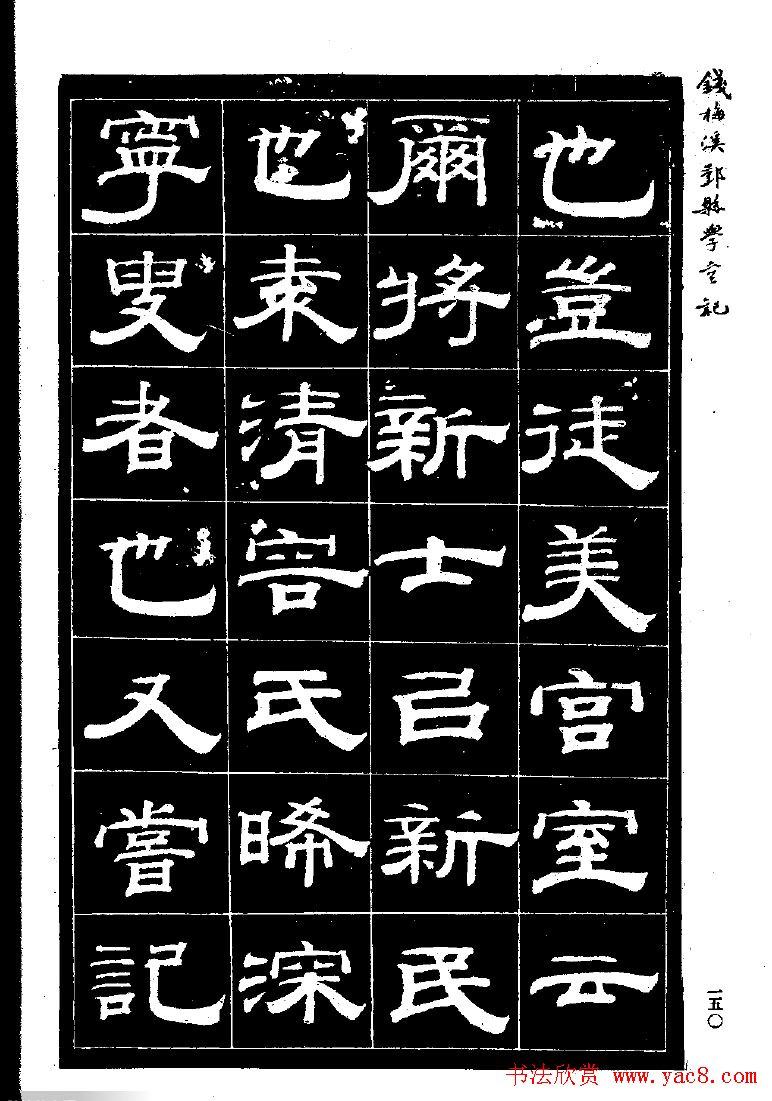 錢梅溪鄞縣學宮記
也豈徒美宮室云
爾將新士㠯新民
也袁清容氏晞深
寧叟者也又嘗記
一五〇
书法欣赏 www.yac8.com